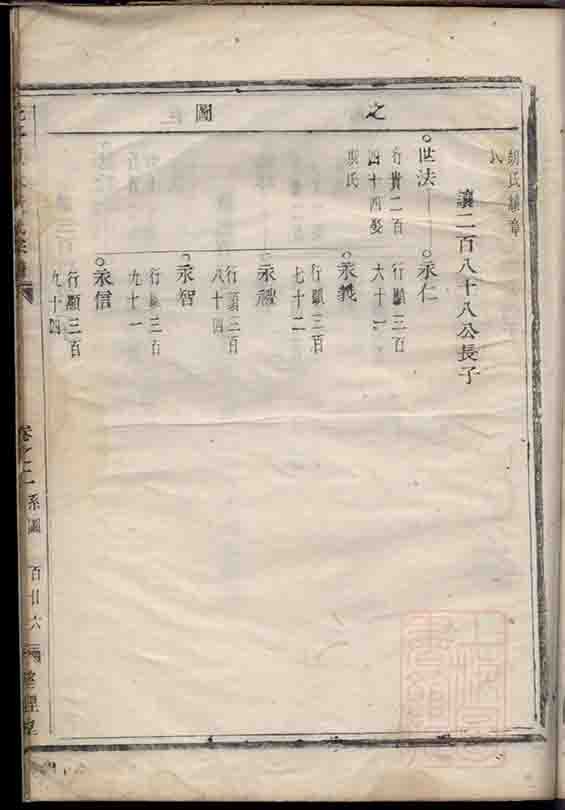 之圖
讓二百八十八公長子
世法
行貴二百
四十四娶
氏
永仁
行顯三百
六十一
永義
行顯三百
七十二
永禮
行顯三百
八十四
永智
行顯三百
九十一
永信
行顯三百
九十四
卷之二
系圖
百廿六